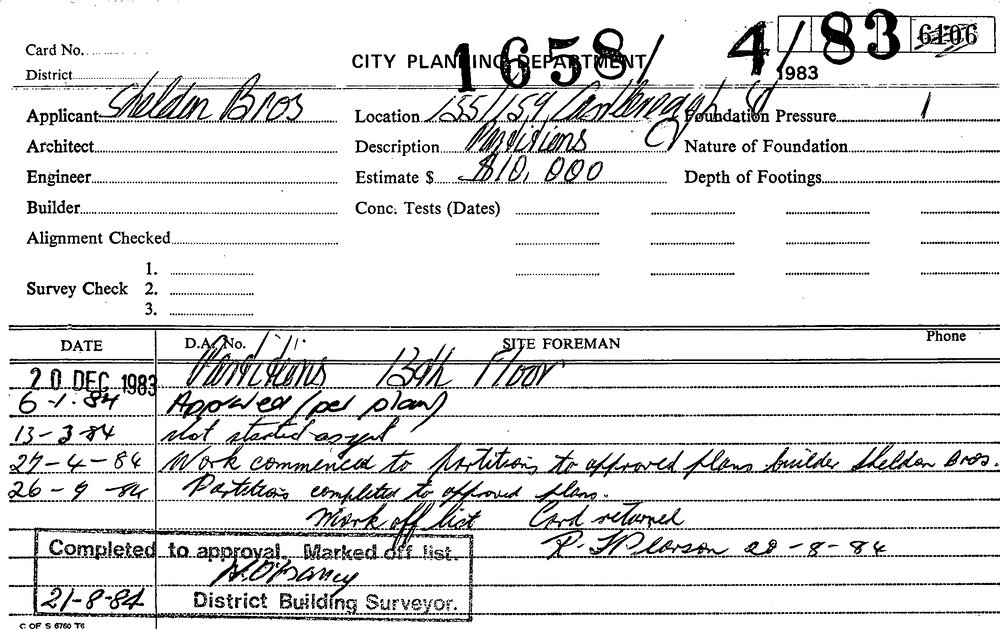 Card No.
CITY PLANNING DEPARTMENT
1658/4/83 6106
District 1983
Applicant Sheldon Bros Location 155/159 Castlereagh St Foundation Pressure
Architect Description Partitions Nature of Foundation
Engineer Estimate $ $10,000 Depth of Footings
Builder Conc. Tests (Dates)
Alignment Checked
1.
Survey Check 2.
3.
DATE D.A. No. SITE FOREMAN Phone
20 DEC 1983 Partitions 13th Floor
6-1-84 Approved (per plan)
13-3-84 Not started as yet
27-4-84 Work commenced to partitions to approved plans builder Sheldon Bros.
26-9-84 Partitions completed to approved plans.
Mark off list Card returned
Completed to approval. Marked off list. 20-8-84
21-8-84 District Building Surveyor.
C OF S 6760 T6